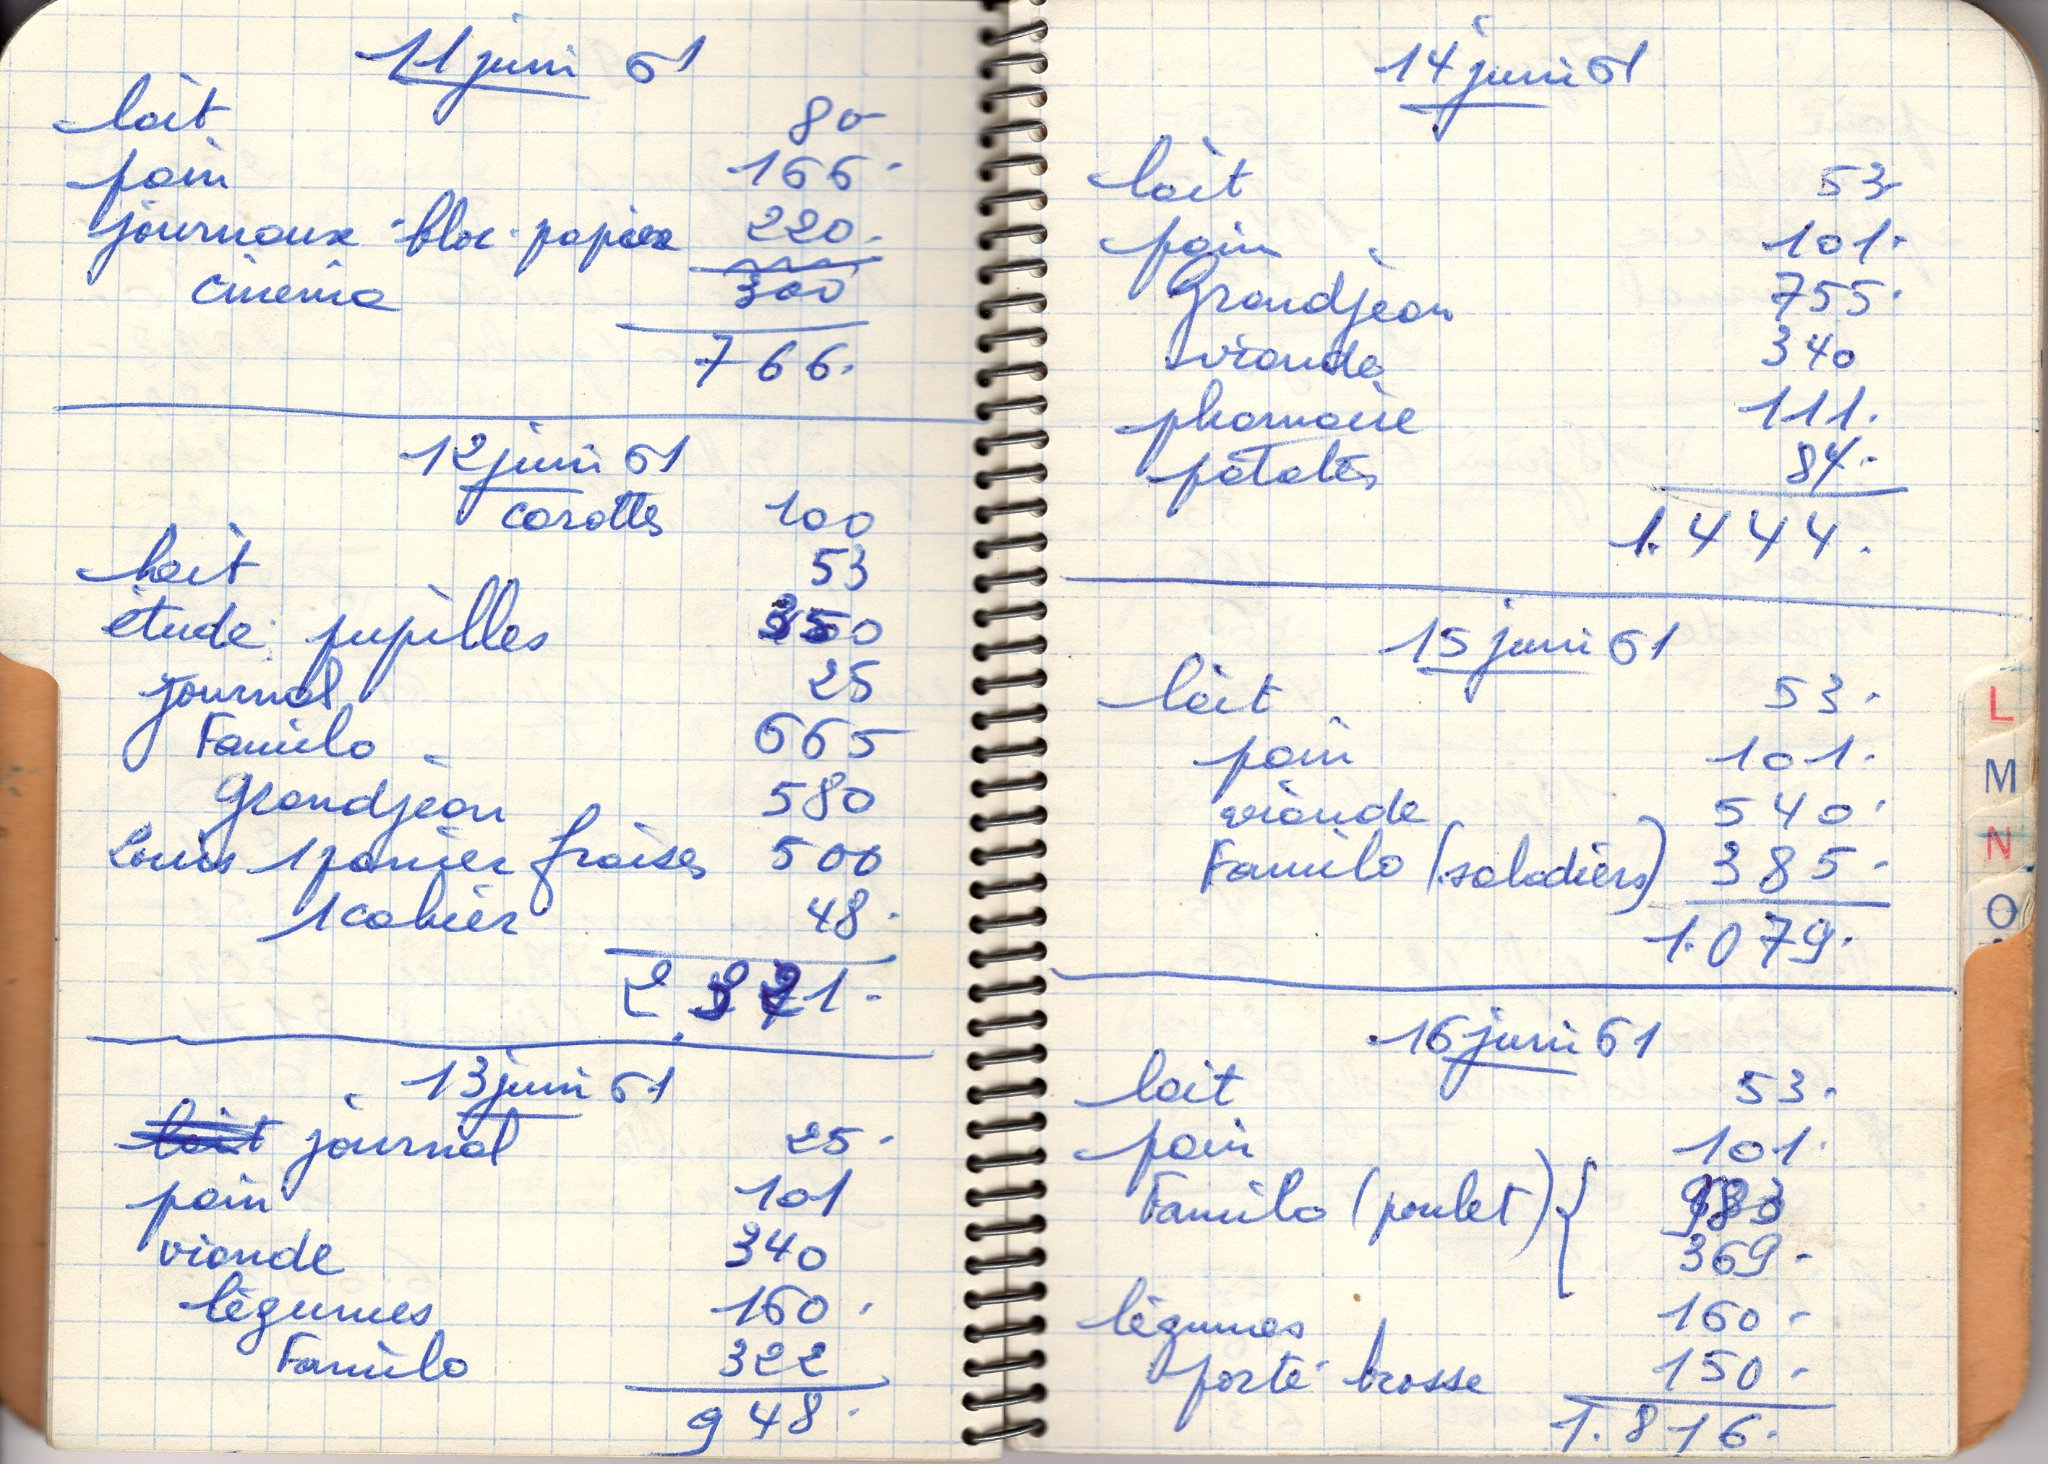 11 juin 61
lait 80
pain 166.
journaux - bloc - papier 220.
cinéma 300
766.
12 juin 61
carottes 100
lait 53
étude pupilles 350
journal 25
Familo 665
Grandjean 580
Louis 1 panier fraises 500
1 cahier 48.
2.321.
13 juin 61
lait journal 25.
pain 101
viande 340
légumes 160.
Familo 322
948.
14 juin 61
lait 53
pain 101.
Grandjean 755.
viande 340
pharmacie 111.
patates 84.
1.444.
15 juin 61
lait 53.
pain 101.
viande 540.
Familo (saladiers) 385.
1.079.
16 juin 61
lait 53.
pain 101.
Familo (poulet) { 983
369.
légumes 160.
porte-brosse 150.
1.816.
L
M
N
O